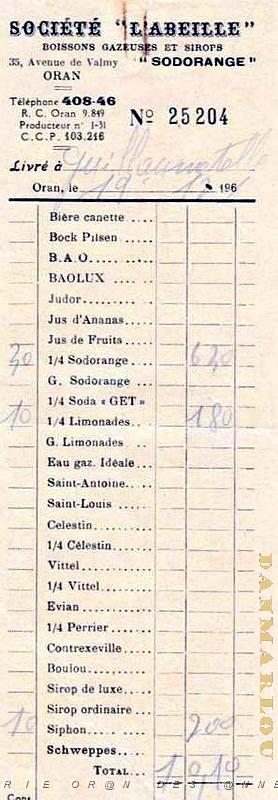 SOCIÉTÉ "L'ABEILLE"
BOISSONS GAZEUSES ET SIROPS
35, Avenue de Valmy "SODORANGE"
ORAN
Téléphone 408-46
R. C. Oran 9.849
Producteur n° 1-31
C. C. P. 103.216
No 25204
Livré à
Oran, le 19 196
Bière canette ....
Bock Pilsen .....
B. A. O. ......
BAOLUX .....
Judor.........
Jus d'Ananas....
Jus de Fruits....
30 1/4 Sodorange.... 630
G. Sodorange ...
1/4 Soda « GET »
10 1/4 Limonades.. 180
G. Limonades ..
Eau gaz. Idéale...
Saint-Antoine...
Saint-Louis .....
Celestin........
1/4 Célestin......
Vittel..........
1/4 Vittel.......
Evian .........
1/4 Perrier .....
Contrexeville ....
Boulou........
Sirop de luxe....
Sirop ordinaire ...
10 Siphon........ 200
Schweppes.....
TOTAL... 1010
DANMARLOU